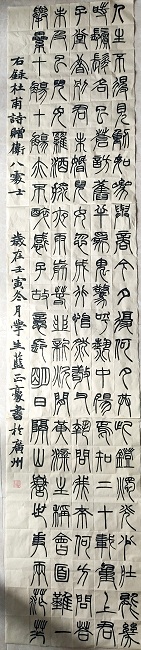 人生不相見動如參與商今夕復何夕共此鐙燭光少壯能幾
時鬢髮各已蒼訪舊半為鬼驚呼熱中腸焉知二十載重上君
子堂昔別君未婚兒女忽成行怡然敬父執問我來何方問答
乃未已兒女羅酒漿夜雨翦春韭新炊間黃粱主稱會面難一
舉累十觴十觴亦不醉感子故意長明日隔山嶽世事兩茫茫
右錄杜甫詩贈衛八處士 歲在壬寅冬月學生藍正豪書於廣州